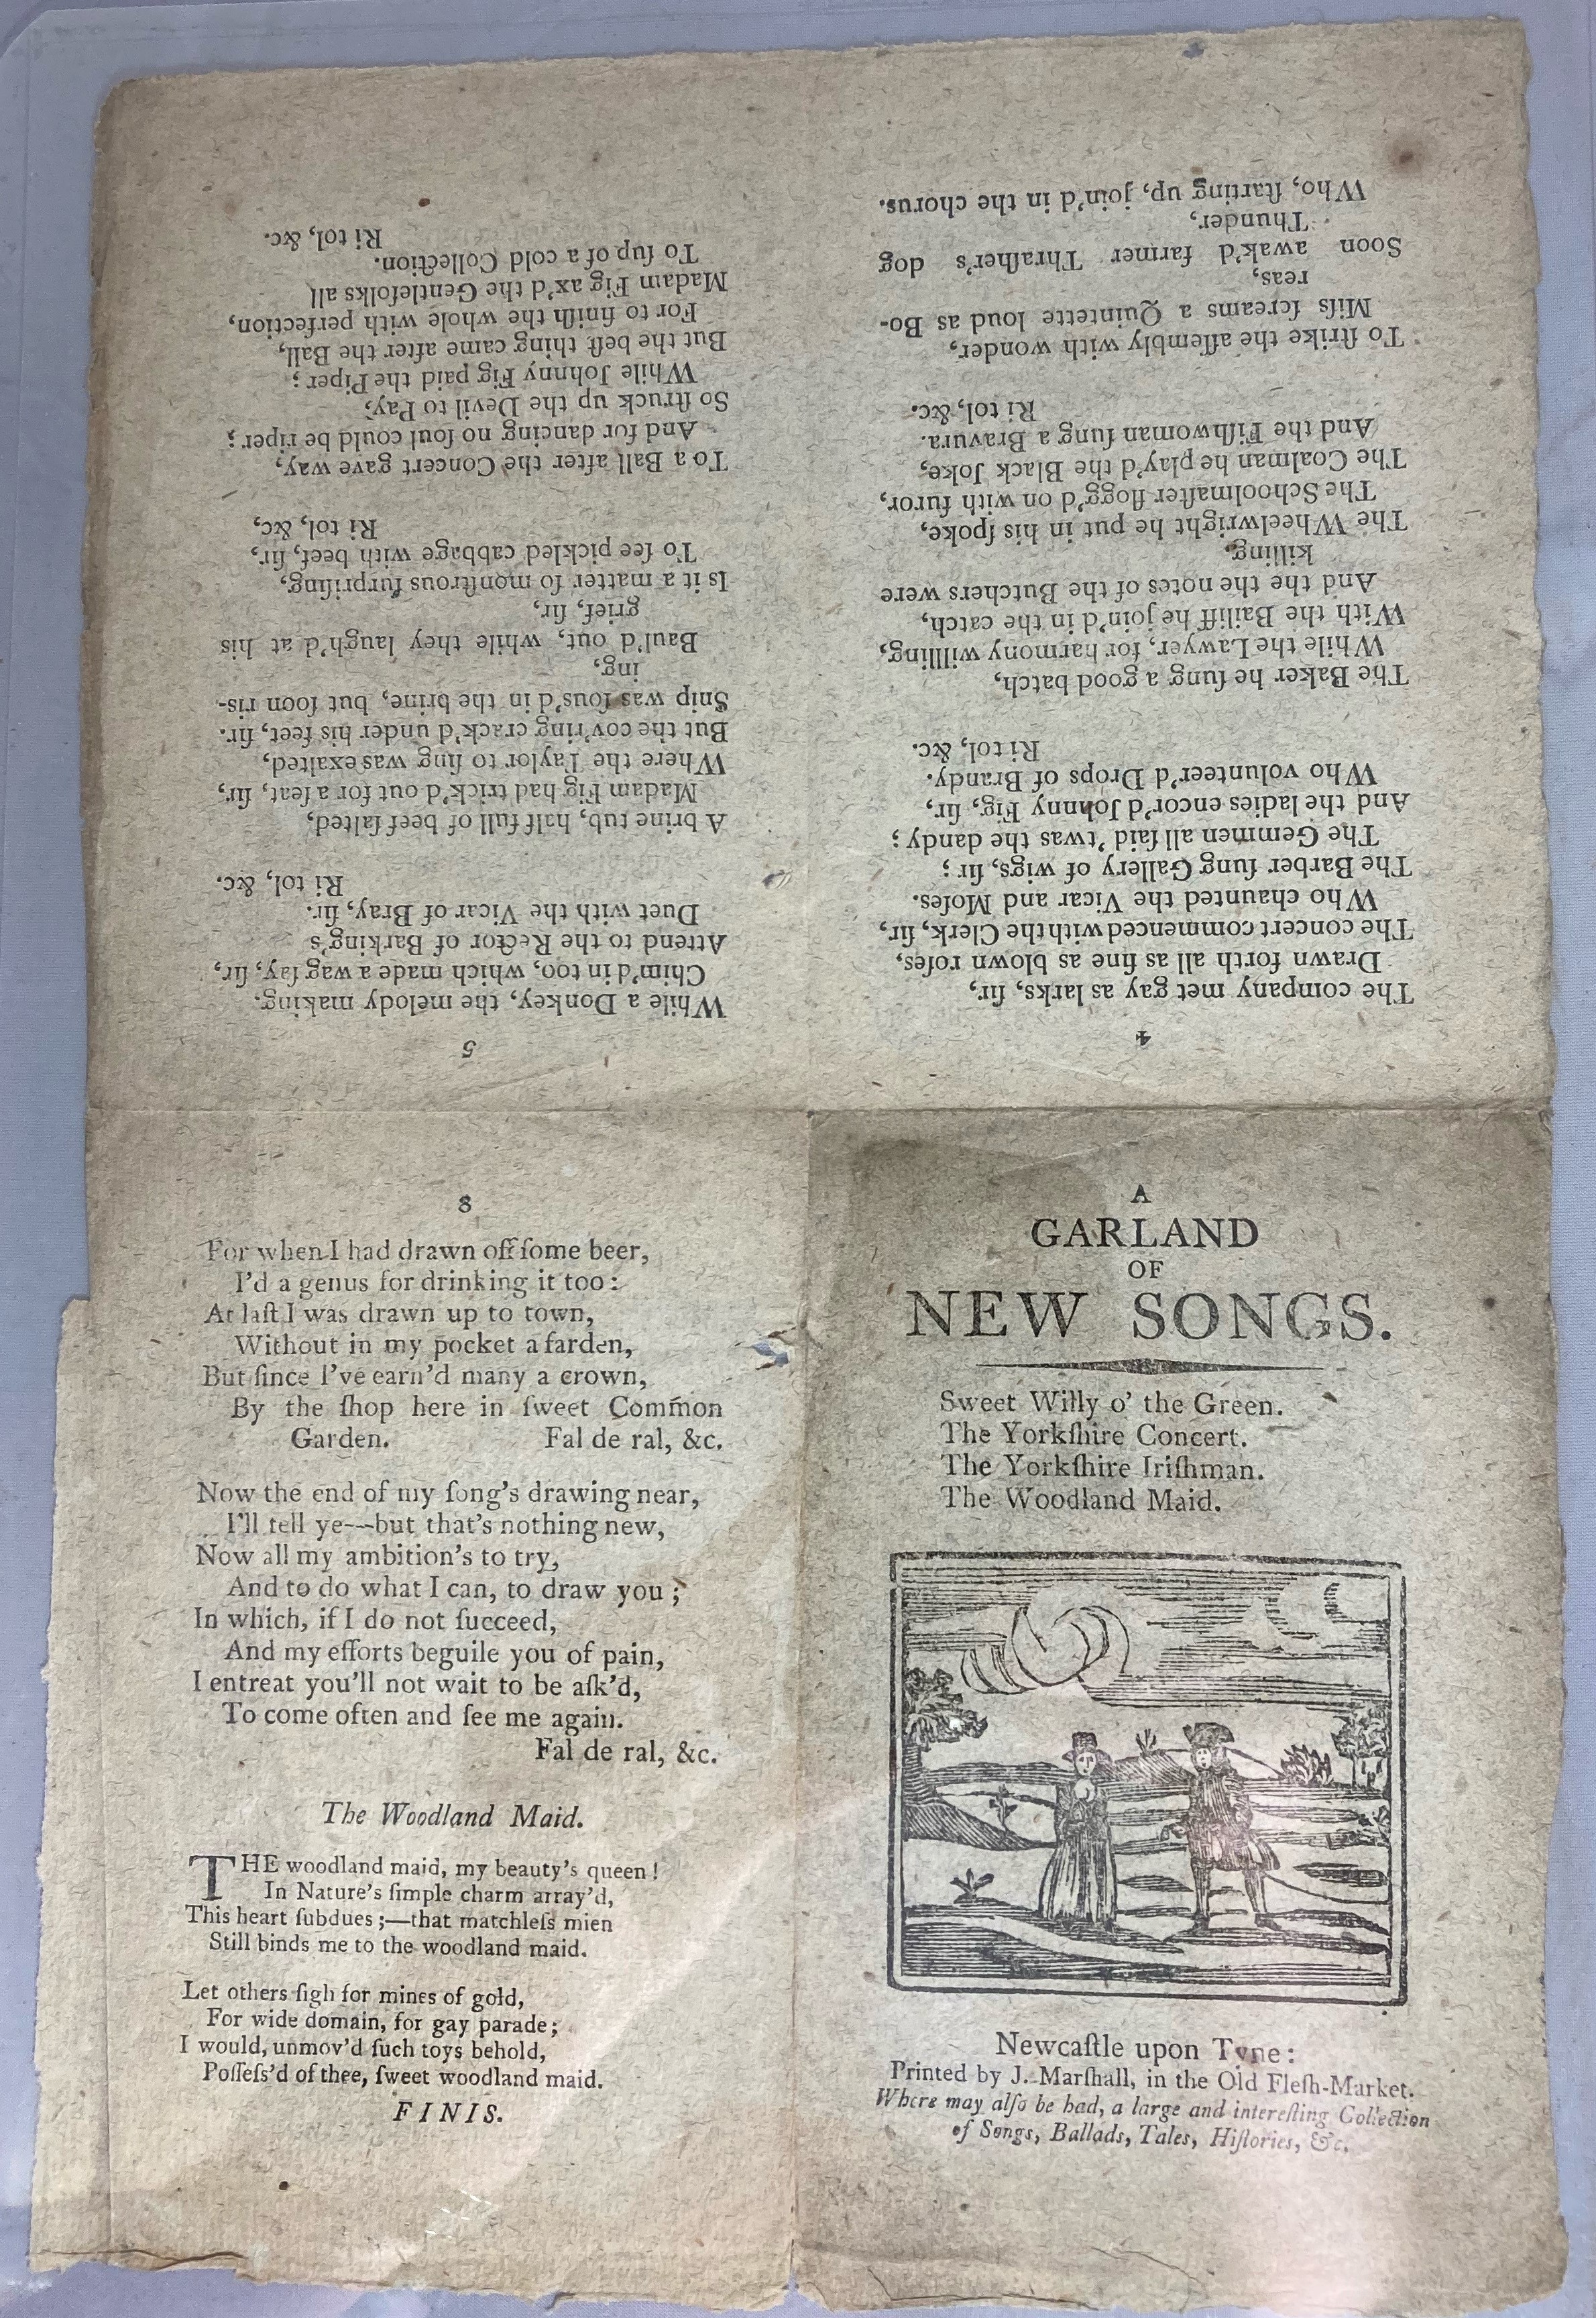 A
GARLAND
OF
NEW SONGS.
Sweet Willy o' the Green.
The Yorkſhire Concert.
The Yorkſhire Iriſhman.
The Woodland Maid.
Newcaſtle upon Tyne:
Printed by J. Marſhall, in the Old Fleſh-Market.
Where may alſo be had, a large and intereſting Collection
of Songs, Ballads, Tales, Hiſtories, &c.
4
The company met gay as larks, ſir,
Drawn forth all as fine as blown roſes,
The concert commenced with the Clerk, ſir,
Who chaunted the Vicar and Moſes.
The Barber ſung Gallery of wigs, ſir;
The Gemmen all ſaid 'twas the dandy;
And the ladies encor'd Johnny Fig, ſir,
Who volunteer'd Drops of Brandy.
Ri tol, &c.
The Baker he ſung a good batch,
While the Lawyer, for harmony willling,
With the Bailiff he join'd in the catch,
And the the notes of the Butchers were
killing.
The Wheelwright he put in his ſpoke,
The Schoolmaſter flogg'd on with furor,
The Coalman he play'd the Black Joke,
And the Fiſhwoman ſung a Bravura.
Ri tol, &c.
To ſtrike the aſſembly with wonder,
Miſs ſcreams a Quintette loud as Bo-
reas,
Soon awak'd farmer Thraſher's dog
Thunder,
Who, ſtarting up, join'd in the chorus.
5
While a Donkey, the melody making.
Chim'd in too, which made a wag ſay, ſir,
Attend to the Rector of Barking's
Duet with the Vicar of Bray, ſir.
Ri tol, &c.
A brine tub, half full of beef ſalted,
Madam Fig had trick'd out for a ſeat, ſir,
Where the Taylor to ſing was exalted,
But the cov'ring crack'd under his feet, ſir.
Snip was ſous'd in the brine, but ſoon ris-
ing,
Baul'd out, while they laugh'd at his
grief, ſir,
Is it a matter ſo monſtrous ſurpriſing,
To ſee pickled cabbage with beef, ſir,
Ri tol, &c,
To a Ball after the Concert gave way,
And for dancing no ſoul could be riper;
So ſtruck up the Devil to Pay,
While Johnny Fig paid the Piper;
But the beſt thing came after the Ball,
For to finiſh the whole with perfection,
Madam Fig ax'd the Gentlefolks all
To ſup of a cold Collection.
Ri tol, &c.
8
For when I had drawn off ſome beer,
I'd a genus for drinking it too:
At laſt I was drawn up to town,
Without in my pocket a farden,
But ſince I've earn'd many a crown,
By the ſhop here in ſweet Common
Garden. Fal de ral, &c.
Now the end of my ſong's drawing near,
I'll tell ye---but that's nothing new,
Now all my ambition's to try,
And to do what I can, to draw you;
In which, if I do not ſucceed,
And my efforts beguile you of pain,
I entreat you'll not wait to be aſk'd,
To come often and ſee me again.
Fal de ral, &c.
The Woodland Maid.
THE woodland maid, my beauty's queen!
In Nature's ſimple charm array'd,
This heart ſubdues;—that matchleſs mien
Still binds me to the woodland maid.
Let others ſigh for mines of gold,
For wide domain, for gay parade;
I would, unmov'd ſuch toys behold,
Poſſeſs'd of thee, ſweet woodland maid.
FINIS.